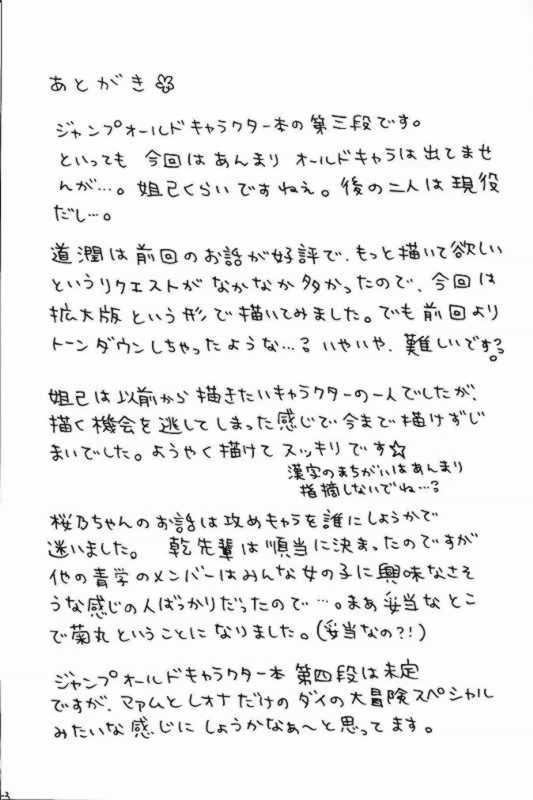 あとがき
ジャンプオールドキャラクター本の第三段です。
といっても 今回はあんまり オールドキャラは出てませ
んが…。妲己くらいですねえ。後の二人は現役
だし…。
道潤は前回のお話が好評で、もっと描いて欲しい
というリクエストが なかなか多かったので、今回は
拡大版という形で描いてみました。でも前回より
トーンダウンしちゃったような…?いやいや、難しいです?。
妲己は以前から描きたいキャラクターの一人でしたが、
描く機会を逃してしまった感じで今まで描けずじ
まいでした。ようやく描けて スッキリです☆
漢字のまちがいはあんまり
指摘しないでね…?
桜乃ちゃんのお話は攻めキャラを誰にしようかで
迷いました。 乾先輩は順当に決まったのですが
他の青学のメンバーはみんな女の子に興味なさそ
うな感じの人ばっかりだったので…。まあ妥当なとこ
で菊丸ということになりました。(妥当なの?!)
ジャンプオールドキャラクター本 第四段は未定
ですが、マァムとレオナだけのダイの大冒険スペシャル
みたいな感じにしようかなぁ〜と思ってます。